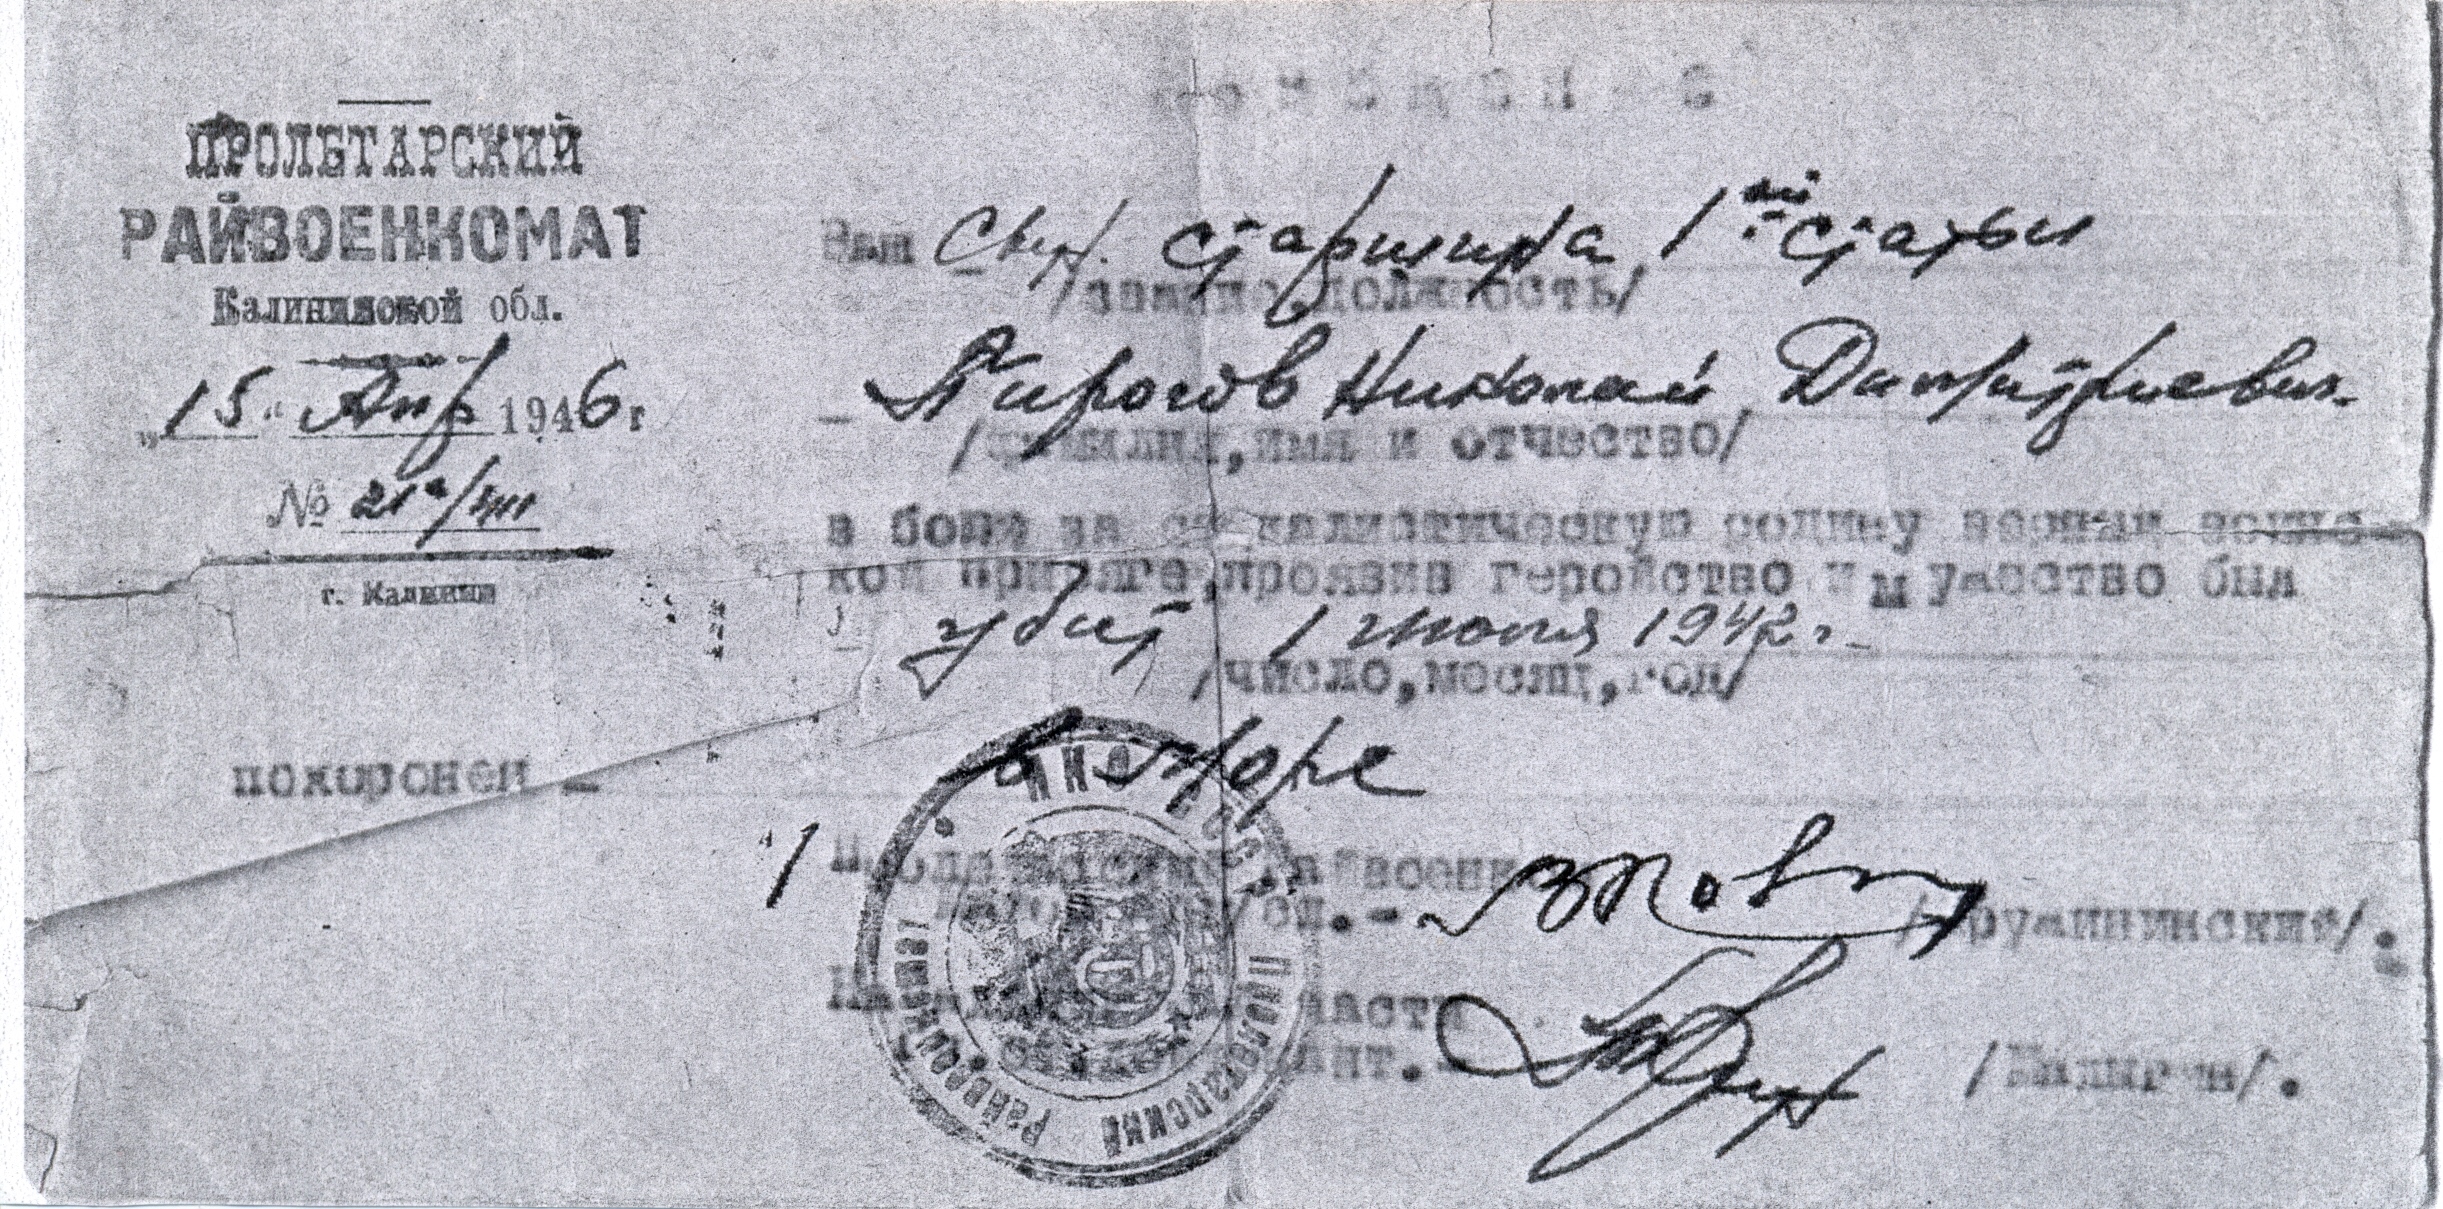 ПРОЛЕТАРСКИЙ
РАЙВОЕНКОМАТ
Калининской обл.
„15“ Апр 1946 г
№
г. Калинин
Ваш старшина 1ой статьи
/звание, должность/
Пирогов Николай Дмитриевич
/фамилия, имя и отчество/
в боях за социалистическую родину верный воинс-
кой присяге, проявив геройство и мужество был
убит 1 июля 1942 г.
/число, месяц, год/
похоронен – в море
Пролетарский райвоенком
/.
части
/.
Пролетарский Райвоенкомат